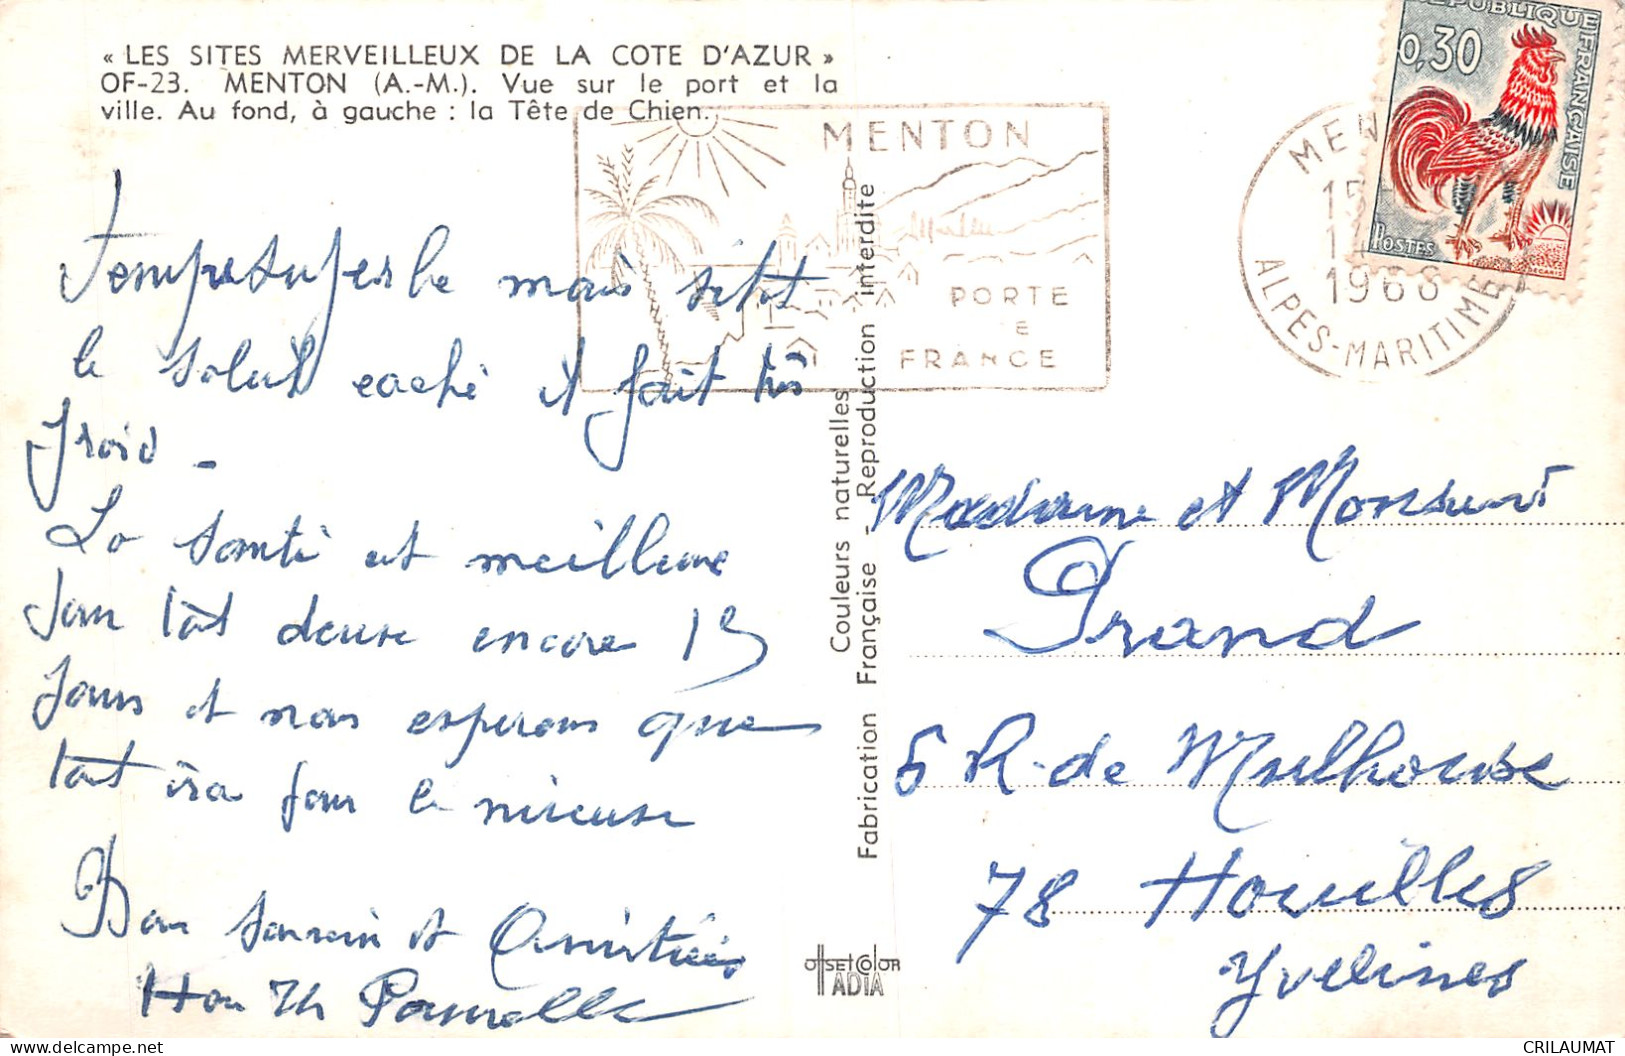 « LES SITES MERVEILLEUX DE LA COTE D'AZUR »
OF-23. MENTON (A.-M.). Vue sur le port et la
ville. Au fond, à gauche : la Tête de Chien.
MENTON
PORTE
E
FRANCE
MEN
15
1968
ALPES-MARITIMES
RÉPUBLIQUE FRANÇAISE
0,30
POSTES
Temps superbe mais sitot
le soleil caché il fait très
froid -
La santé est meilleure
encore 15
Jours et nous esperons que
tout ira pour le mieux
Bon souvenir et Amitiées
Couleurs naturelles
Fabrication Française - Reproduction interdite
Madame et Monsieur
Prand
6 R. de Mulhouse
78 Houilles
Yvelines
OFFSET COLOR
ADIA
delcampe.net
CRILAUMAT